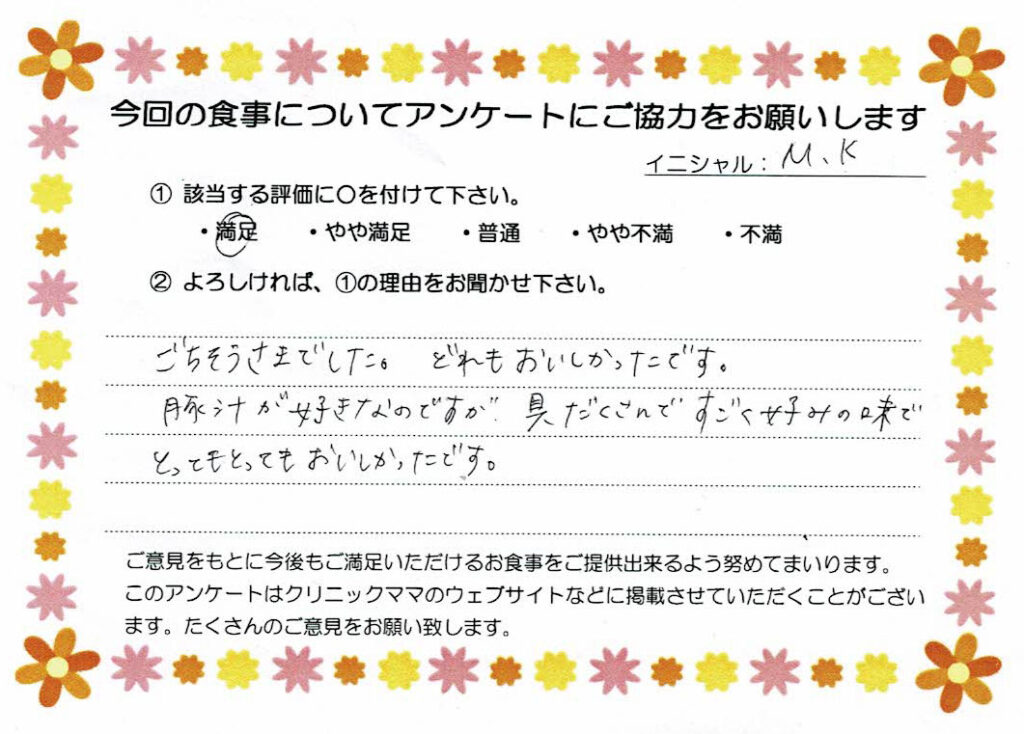 今回の食事についてアンケートにご協力をお願いします
イニシャル：M、K
① 該当する評価に○を付けて下さい。
・満足 ・やや満足 ・普通 ・やや不満 ・不満
② よろしければ、①の理由をお聞かせ下さい。
ごちそうさまでした。 どれもおいしかったです。
豚汁が好きなのですが 具だくさんですごく好みの味で
とってもとってもおいしかったです。
ご意見をもとに今後もご満足いただけるお食事をご提供出来るよう努めてまいります。
このアンケートはクリニックママのウェブサイトなどに掲載させていただくことがござい
ます。たくさんのご意見をお願い致します。